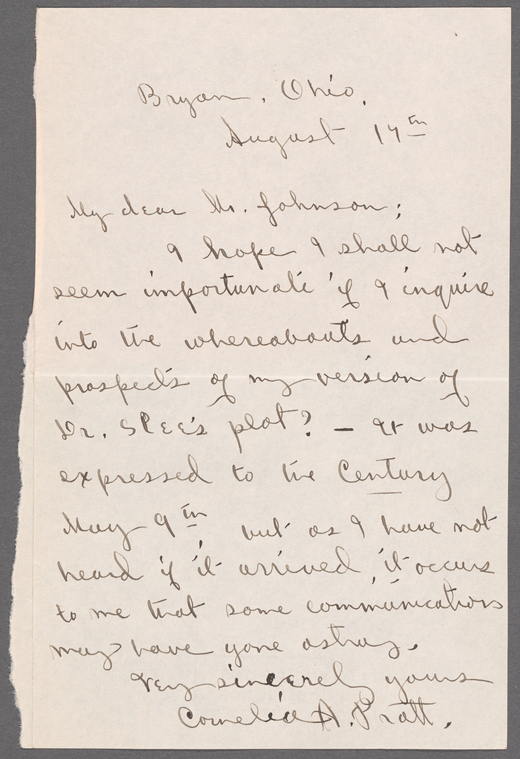 Bryan, Ohio,
August 14th
My dear Mr. Johnson;
I hope I shall not
seem importunate if I inquire
into the whereabouts and
prospects of my version of
Dr. Slee's plot? – It was
expressed to the Century
May 9th but as I have not
heard if it arrived, it occurs
to me that some communications
may have gone astray.
Very sincerely yours
Cornelia A. Pratt.